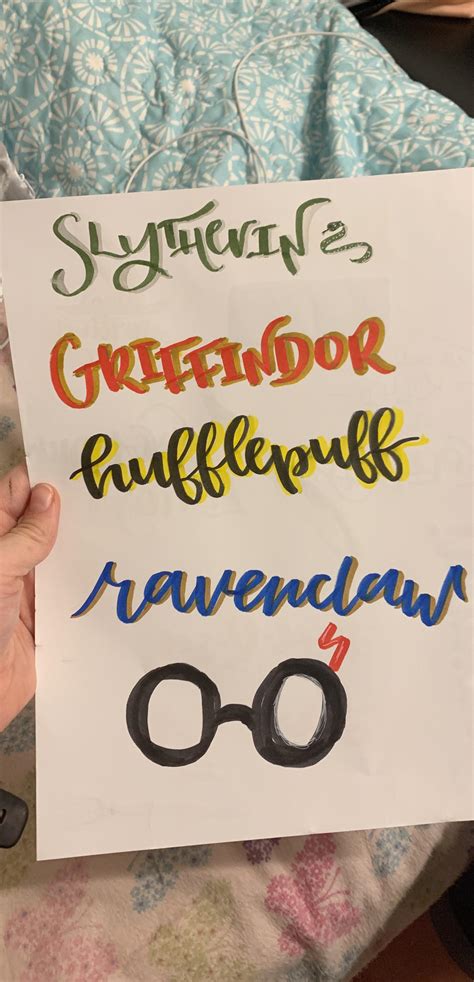 SLYTHERIN
GRIFFINDOR
hufflepuff
ravenclaw